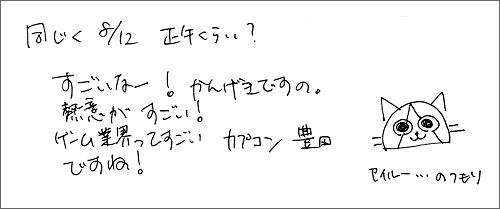 同じく 8/12 正午くらい?
すごいなー! かんげきですの。
熱意がすごい!
ゲーム業界ってすごい
ですね!
カプコン 豊田
アイルー…のつもり